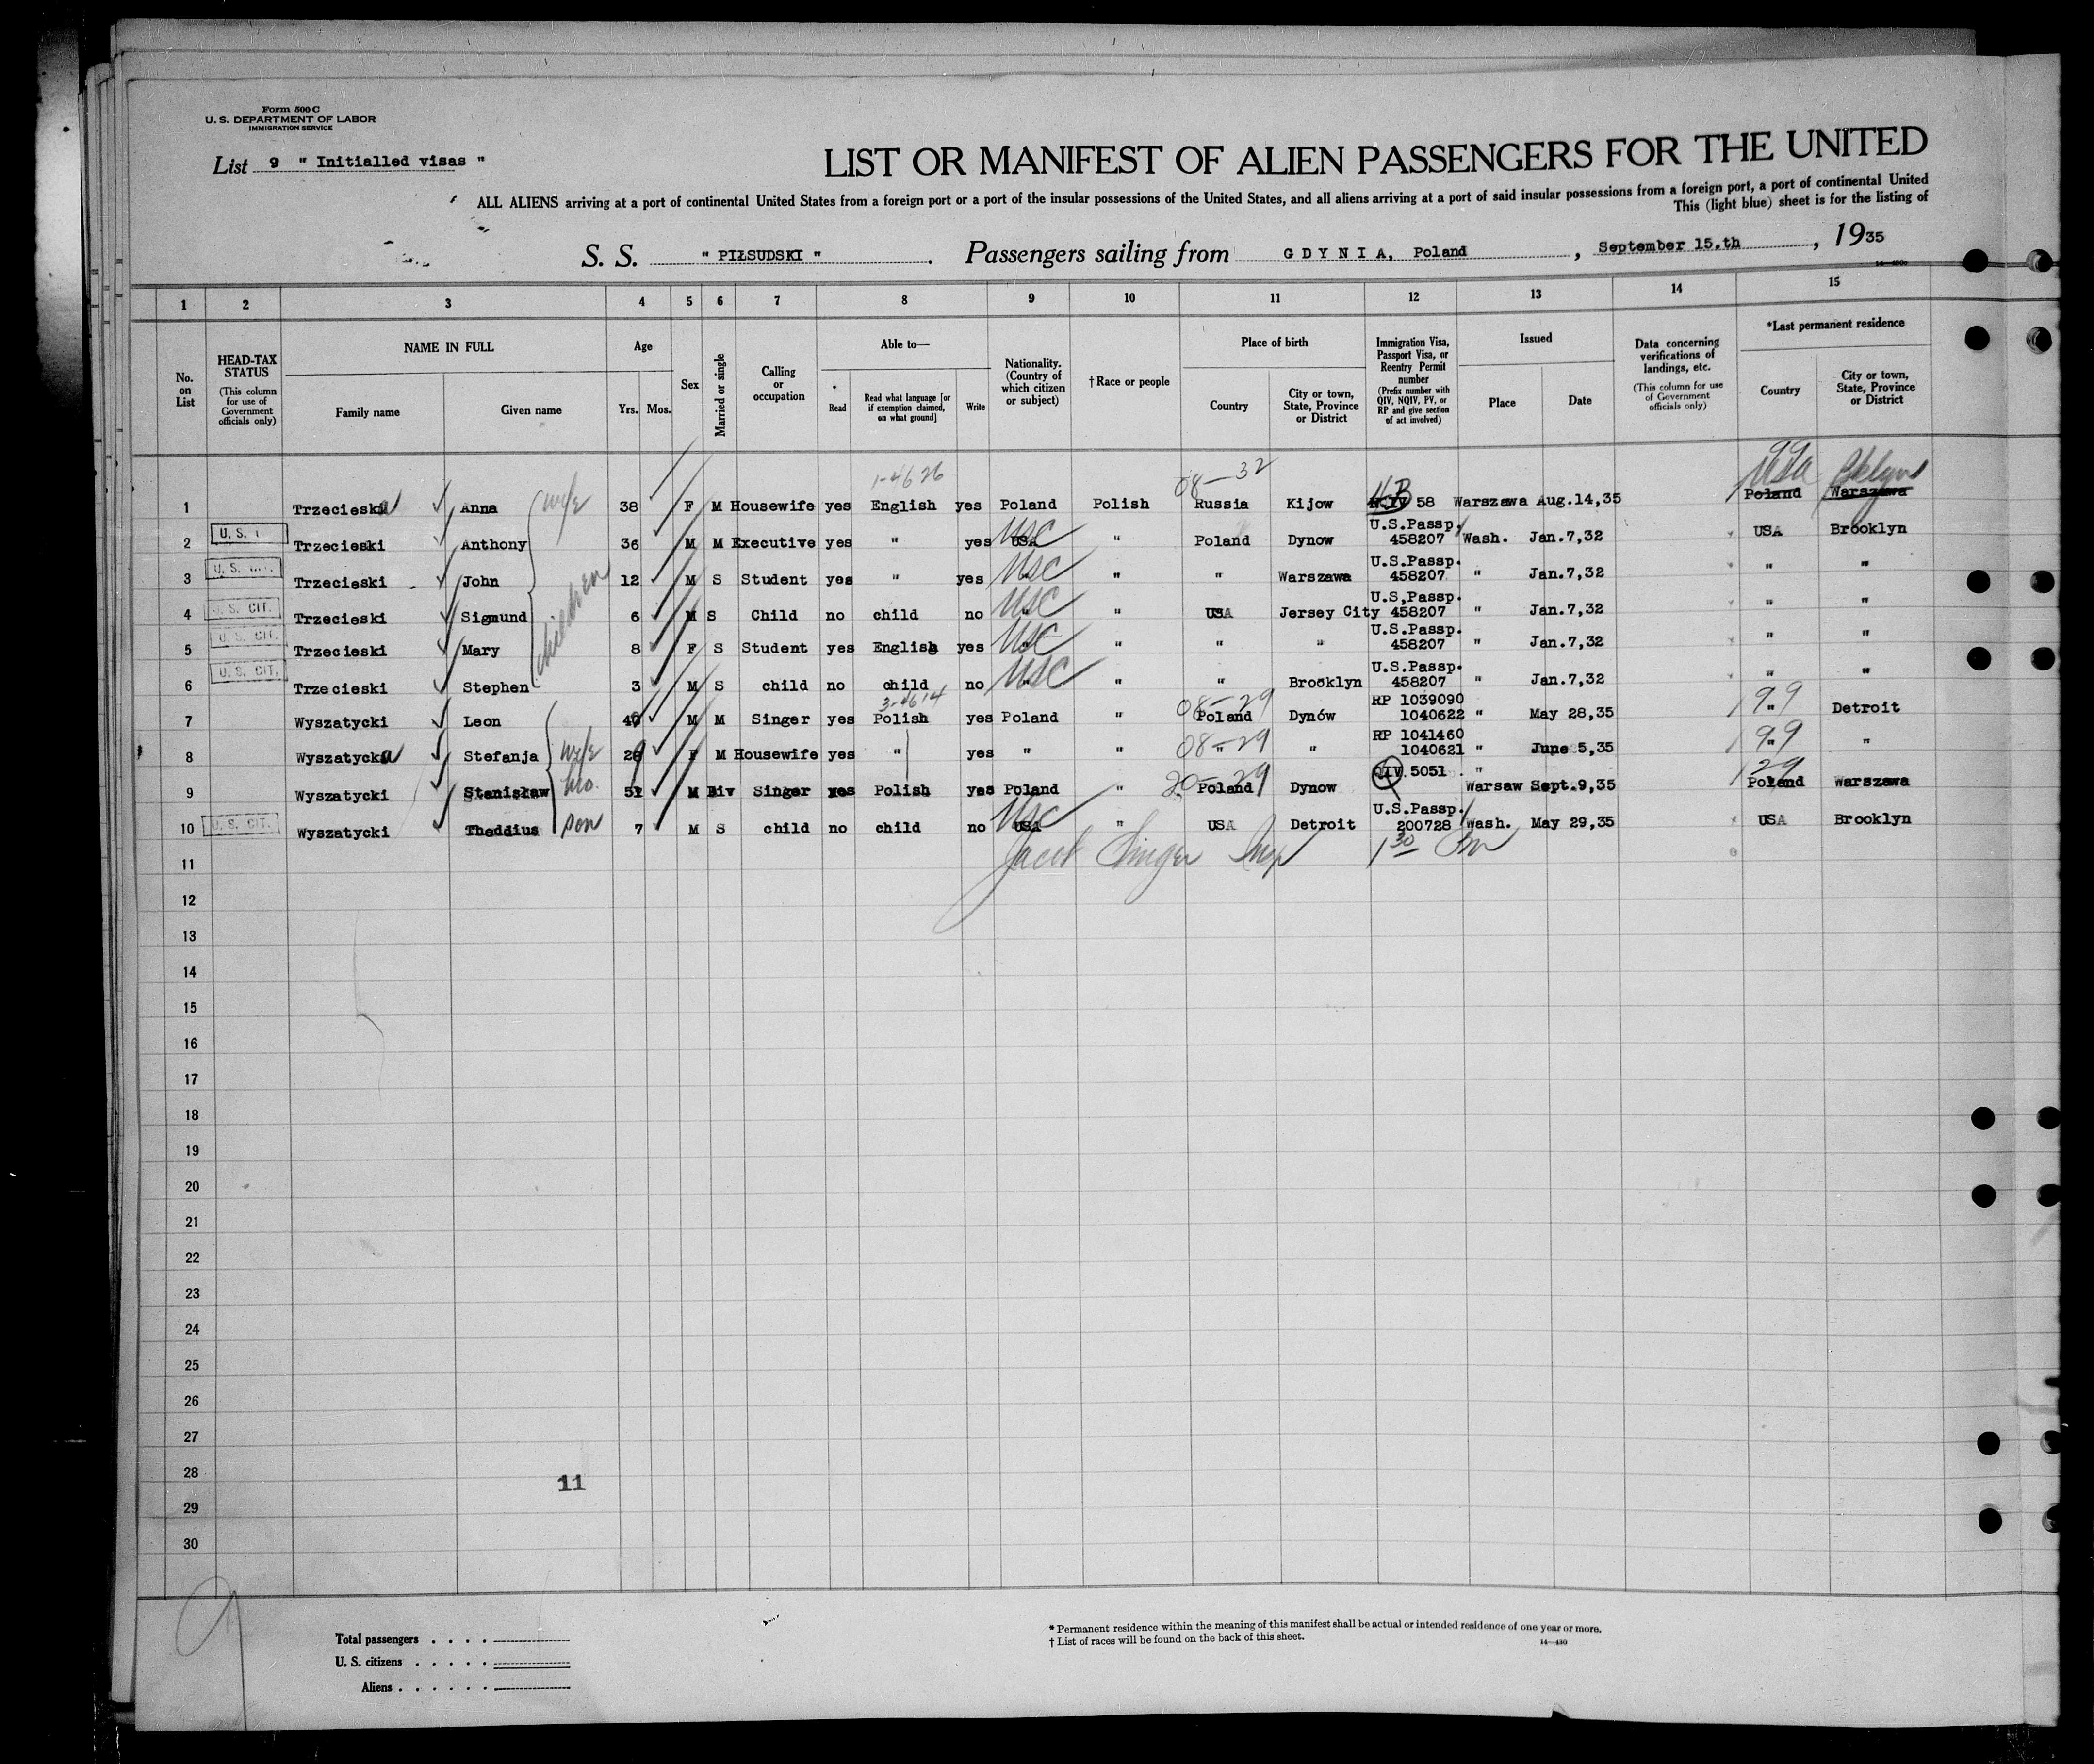 Form 500 C
U. S. DEPARTMENT OF LABOR
IMMIGRATION SERVICE
List 9 " Initialled visas "
LIST OR MANIFEST OF ALIEN PASSENGERS FOR THE UNITED
ALL ALIENS arriving at a port of continental United States from a foreign port or a port of the insular possessions of the United States, and all aliens arriving at a port of said insular possessions from a foreign port, a port of continental United
This (light blue) sheet is for the listing of
S. S. " PIŁSUDSKI ". Passengers sailing from G D Y N I A, Poland, September 15.th, 1935
1 2 3 4 5 6 7 8 9 10 11 12 13 14 15
No. on List
HEAD-TAX STATUS (This column for use of Government officials only)
NAME IN FULL
Family name Given name
Age
Yrs. Mos.
Sex
Married or single
Calling or occupation
Able to—
Read Read what language [or if exemption claimed, on what ground] Write
Nationality. (Country of which citizen or subject)
† Race or people
Place of birth
Country City or town, State, Province or District
Immigration Visa, Passport Visa, or Reentry Permit number (Prefix number with QIV, NQIV, PV, or RP and give section of act involved)
Issued
Place Date
Data concerning verifications of landings, etc. (This column for use of Government officials only)
*Last permanent residence
Country City or town, State, Province or District
1-4626 08-32 4B 99 USA Bklyn
1 Trzecieska Anna wife 38 F M Housewife yes English yes Poland Polish Russia Kijow 58 Warszawa Aug.14,35 Poland Warszawa
2 U. S. Trzecieski Anthony 36 M M Executive yes " yes USA USC " Poland Dynow U.S.Passp. 458207 Wash. Jan.7,32 USA Brooklyn
3 U. S. CIT. Trzecieski John 12 M S Student yes " yes USC " " Warszawa U.S.Passp. 458207 " Jan.7,32 " "
children
4 U. S. CIT. Trzecieski Sigmund 6 M S Child no child no " USC " USA Jersey City U.S.Passp. 458207 " Jan.7,32 " "
5 U. S. CIT. Trzecieski Mary 8 F S Student yes English yes USC " " " U.S.Passp. 458207 " Jan.7,32 " "
6 U. S. CIT. Trzecieski Stephen 3 M S child no child no " USC " " Brooklyn U.S.Passp. 458207 " Jan.7,32 " "
3-4614 08-29 99
7 Wyszatycki Leon 40 M M Singer yes Polish yes Poland " Poland Dynów RP 1039090 1040622 " May 28,35 " Detroit
8 Wyszatycka Stefanja wife F M Housewife yes " yes " " 08-29 " " RP 1041460 1040621 " June 5,35 99 " "
9 Wyszatycki Stanisław bro. 51 M Div Singer yes Polish yes Poland " 20-29 Poland Dynow QIV 5051 " Warsaw Sept.9,35 29 Poland Warszawa
10 U. S. CIT. Wyszatycki Theddius son 7 M S child no child no USA USC " USA Detroit U.S.Passp. 200728 Wash. May 29,35 USA Brooklyn
11 Jacob Singer Insp 1 30 Pm
12
13
14
15
16
17
18
19
20
21
22
23
24
25
26
27
28 11
29
30
9
Total passengers . . . .
U. S. citizens . . . . .
Aliens . . . . . .
* Permanent residence within the meaning of this manifest shall be actual or intended residence of one year or more.
† List of races will be found on the back of this sheet.
14—430